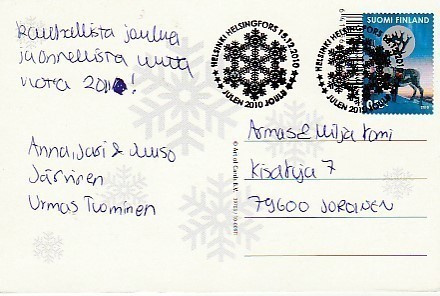 Rauhallista joulua
ja onnellista uutta
vuotta 2010!
Anna, Jari &
Järvinen
Urmas Tuominen
HELSINKI HELSINGFORS 18.12.2010
JULEN 2010 JOULU
HELSINKI HELSINGFORS
JULEN 2010 JOULU
SUOMI FINLAND
Armas &
Kisatuja 7
79600 JOROINEN